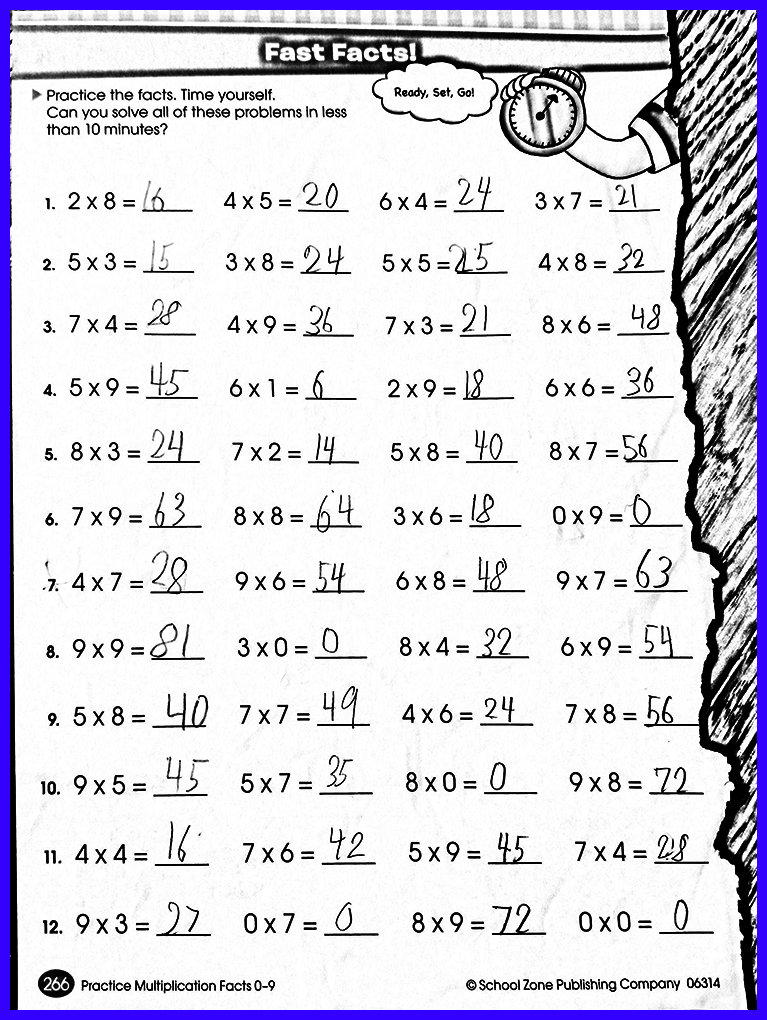 Fast Facts!
Practice the facts. Time yourself.
Can you solve all of these problems in less
than 10 minutes?
Ready, Set, Go!
1. 2 x 8 = 16 4 x 5 = 20 6 x 4 = 24 3 x 7 = 21
2. 5 x 3 = 15 3 x 8 = 24 5 x 5 = 25 4 x 8 = 32
3. 7 x 4 = 28 4 x 9 = 36 7 x 3 = 21 8 x 6 = 48
4. 5 x 9 = 45 6 x 1 = 6 2 x 9 = 18 6 x 6 = 36
5. 8 x 3 = 24 7 x 2 = 14 5 x 8 = 40 8 x 7 = 56
6. 7 x 9 = 63 8 x 8 = 64 3 x 6 = 18 0 x 9 = 0
7. 4 x 7 = 28 9 x 6 = 54 6 x 8 = 48 9 x 7 = 63
8. 9 x 9 = 81 3 x 0 = 0 8 x 4 = 32 6 x 9 = 54
9. 5 x 8 = 40 7 x 7 = 49 4 x 6 = 24 7 x 8 = 56
10. 9 x 5 = 45 5 x 7 = 35 8 x 0 = 0 9 x 8 = 72
11. 4 x 4 = 16 7 x 6 = 42 5 x 9 = 45 7 x 4 = 28
12. 9 x 3 = 27 0 x 7 = 0 8 x 9 = 72 0 x 0 = 0
266 Practice Multiplication Facts 0-9 © School Zone Publishing Company 06314